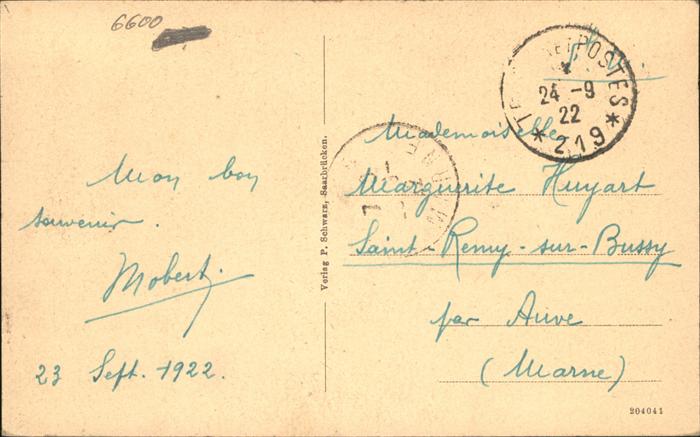 6600
Mon bon
souvenir.
Mobert.
23 Sept. 1922.
Verlag P. Schwarz, Saarbrücken.
POSTES
24 -9
22
* 219 *
Mademoiselle
Marguerite Huyart
Saint-Remy-sur-Bussy
par Auve
(Marne)
204041